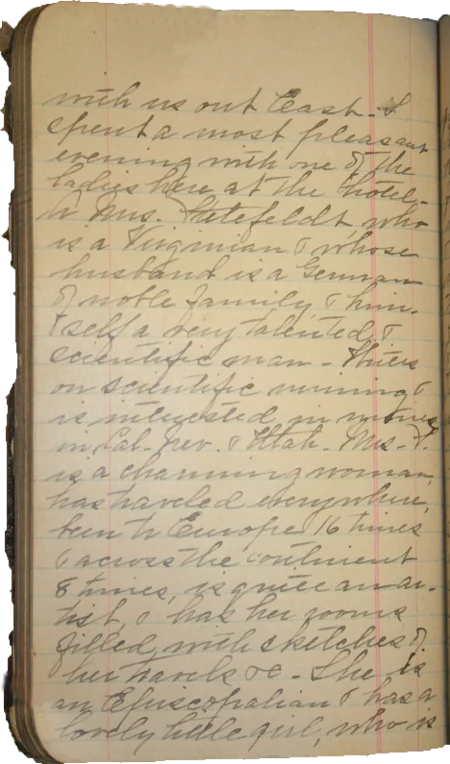 with us out East. I
spent a most pleasant
evening with one of the
ladies here at the hotel -
a Mrs. who
is a Virginian & whose
husband is a German
of noble family & him-
self a very talented &
scientific man - Writes
on scientific mining &
is interested in mines
in Cal. Nev. & Utah. Mrs.
is a charming woman,
has traveled everywhere,
been to Europe 16 times
& across the continent
8 times, is quite an ar-
tist, & has her rooms
filled with sketches of
her travels &c - She is
an Episcopalian & has a
lovely little girl, who is